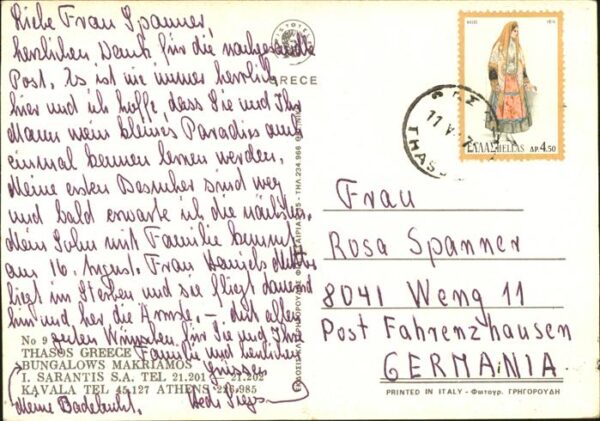 Liebe Frau Spanner,
herzlichen Dank für die nachgesandte
Post. Es ist wie immer herrlich
hier und ich hoffe, dass Sie und Ihr
Mann mein kleines Paradies auch
einmal kennen lernen werden.
Meine ersten Besucher sind weg
und bald erwarte ich die nächsten.
Mein Sohn mit Familie kommt
am 16. August. Frau Daniels Mutter
liegt im Sterben und sie fliegt dauernd
hin und her, die Ärmste. – Mit allen
guten Wünschen für Sie und Ihre
Familie und herzlichen
Grüssen
Hedi
Meine Badebucht.
No 9
THASOS GREECE
BUNGALOWS MAKRIAMOS
I. SARANTIS S.A. TEL 21.201 - 21.202
KAVALA TEL 45.127 ATHENS 226.985
GRECE
ΤΗΛ 234 966
THASOS
11 V
ΕΛΛΑΣ HELLAS ΔΡ. 4.50
Frau
Rosa Spanner
8041 Weng 11
Post Fahrenzhausen
GERMANIA
PRINTED IN ITALY - Φωτογρ. ΓΡΗΓΟΡΟΥΔΗ